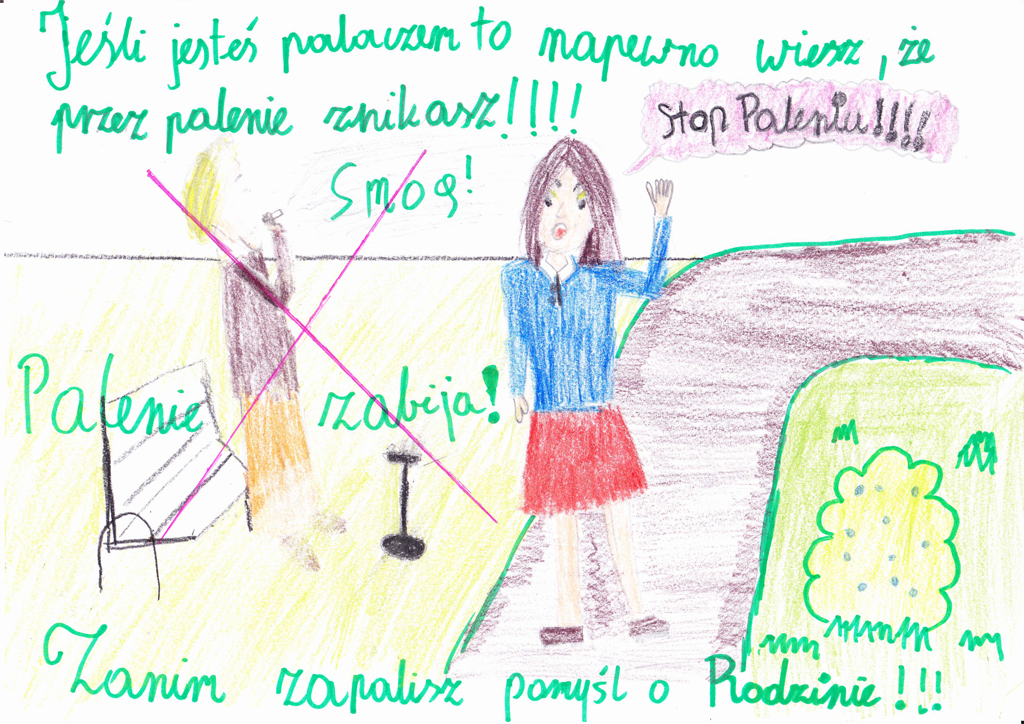 Jeśli jesteś palaczem to napewno wiesz, że
przez palenie znikasz!!!!
Stop Paleniu!!!!
Smog!
Palenie zabija!
Zanim zapalisz pomyśl o Rodzinie!!!